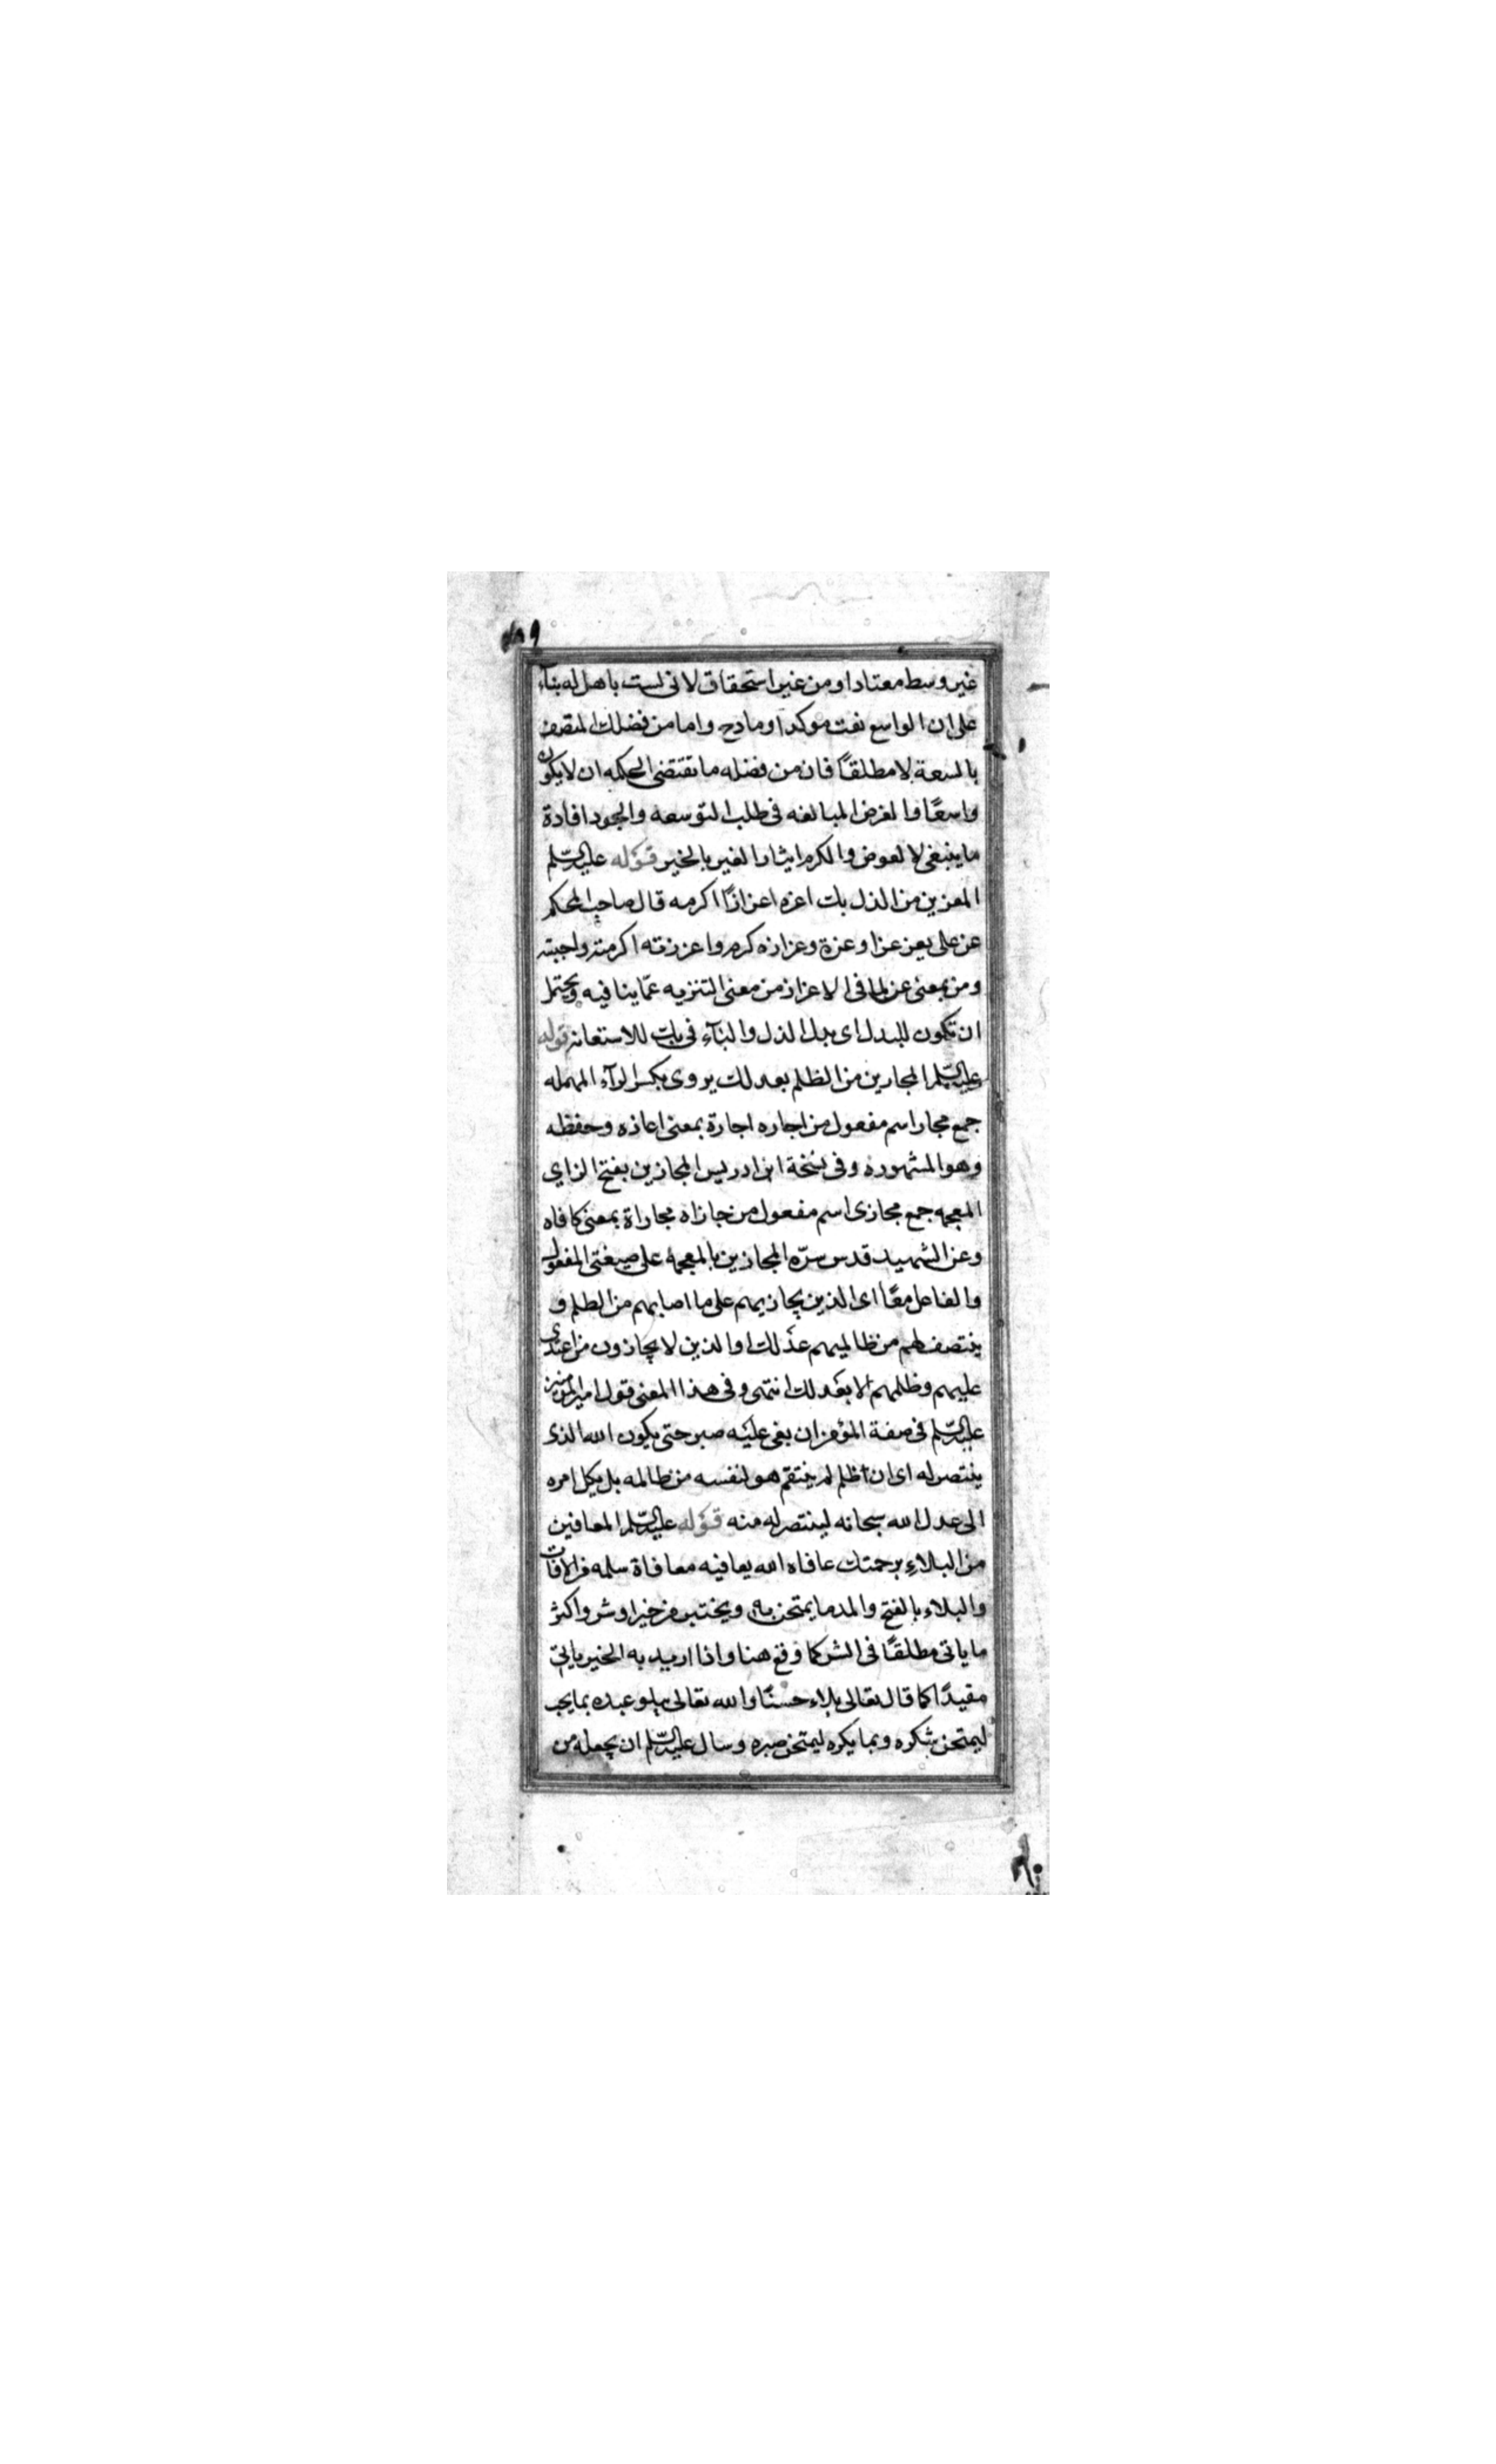 غير وسط معتاد او من غير استحقاق لانى لست باهل له بناء
على ان الواسع نعت موكد او مادح واما من فضلك المتصف
بالسعة لا مطلقًا فان من فضله ما تقتضى الحكمه ان لا يكون
واسعًا والغرض المبالغه فى طلب التوسعه والجود افادة
ما ينبغى لا لعوض والكرم ايثار الغير بالخير قوله عليه السّلم
المعزين من الذل بك اعزه اعزازًا اكرمه قال صاحب المحكم
عز على يعز عزا وعزة وعزازه كرم واعززته اكرمته واحببته
ومن بمعنى عن لما فى الاعزاز من معنى التنزيه عمّا ينافيه ويحتمل
ان تكون للبدل اى بدل الذل والبآء فى بك للاستعانه قوله
عليه السّلم المجارين من الظلم بعدلك يروى بكسر الرآء المهمله
جمع مجار اسم مفعول من اجاره اجارة بمعنى اعاذه وحفظه
وهو المشهوره وفى نسخة ابن ادريس المجازين بفتح الزاي
المعجمه جمع مجازى اسم مفعول من جازاه مجاراة بمعنى كافاه
وعن الشهيد قدس سرّه المجازين بالمعجمه على صيغتى المفعول
والفاعل معًا اى الذين يجازيهم على ما اصابهم من الظلم و
ينتصف لهم من ظالميهم عدلك او الذين لا يجازون من اعتدى
عليهم وظلمهم الا بعدلك انتهى وفى هذا المعنى قول امير المومنين
عليه السّلم فى صفة المؤمن ان بغى عليه صبر حتى يكون الله الذى
ينتصر له اى ان ظلم لم ينتقم هو لنفسه من ظالمه بل يكل امره
الى عدل الله سبحانه لينتصر له منه قوله عليه السّلم المعافين
من البلاء برحمتك عافاه الله يعافيه معافاة سلمه من الافات
والبلاء بالفتح والمد ما يمتحن به ويختبر من خير او شر واكثر
ما ياتى مطلقًا فى الشر كما وقع هنا واذا اريد به الخير ياتى
مقيدًا كما قال تعالى بلاء حسنًا والله تعالى يبلو عبده بما يحب
ليمتحن شكره وبما يكره ليمتحن صبره وسال عليه السّلم ان يجعله من